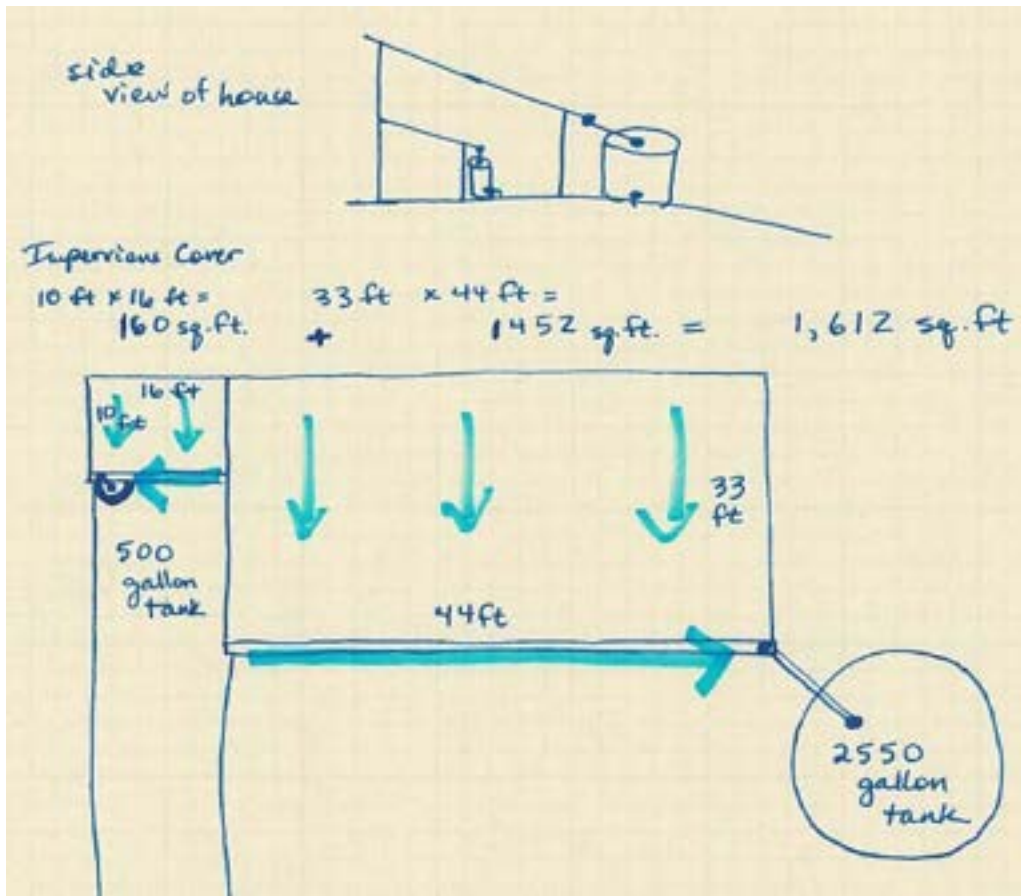 side
view of house
Impervious Cover
10 ft x 16 ft = 33 ft x 44 ft =
160 sq.ft. + 1452 sq.ft. = 1,612 sq.ft
16 ft
10 ft
33
ft
500
gallon
tank
44ft
2550
gallon
tank